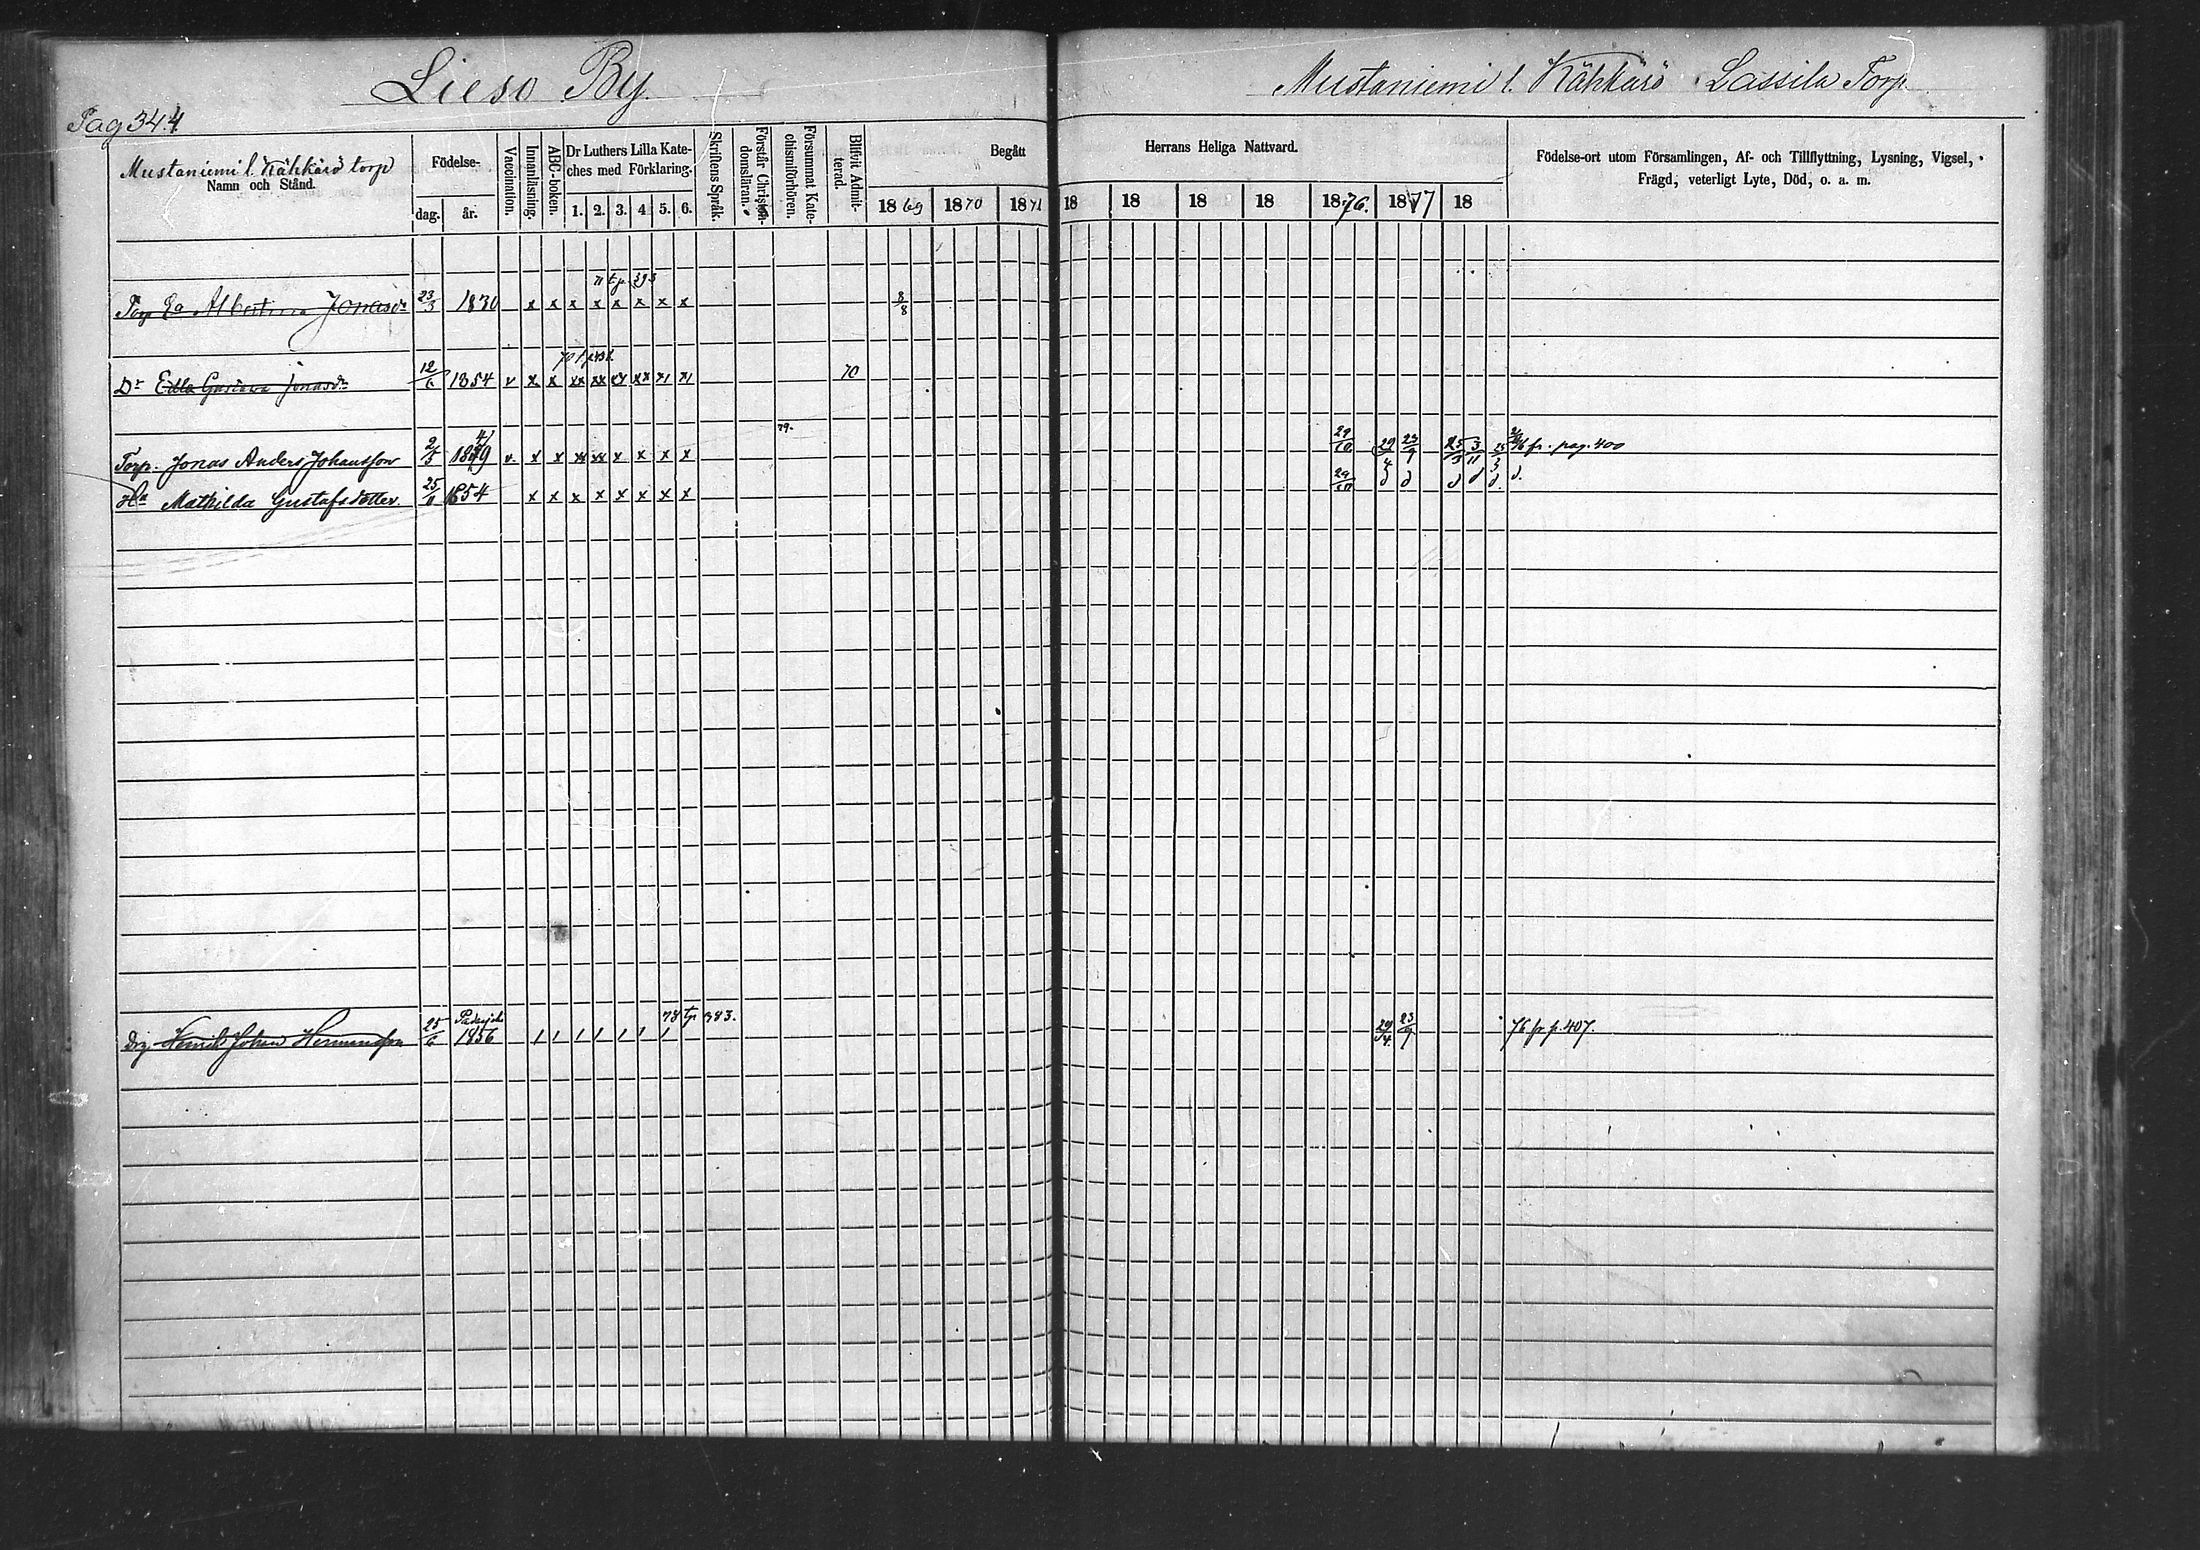 Lieso By.
Mustaniemi l. Kähkärö Lassila Torp
Pag 344.
Mustaniemi l. Kähkärö torp
Namn och Stånd.
Födelse-
dag. år.
Vaccination.
Innanläsning.
ABC-boken.
Dr Luthers Lilla Kate-
ches med Förklaring.
1. 2. 3. 4 5. 6.
Skriftens Språk.
Förstår Christen-
domsläran.
Försummat Kate-
chismiförhören.
Blifvit Admit-
terad.
Begått
1869 1870 1871
Herrans Heliga Nattvard.
18 18 18 18 1876. 1877 18
Födelse-ort utom Församlingen, Af- och Tillflyttning, Lysning, Vigsel,
Frägd, veterligt Lyte, Död, o. a. m.
71 t. p. 393
Torp Ea Albertina Jonasdr 23/3 1830 x x x x x x x x 8/8
Dr Edla Gustava Jonasdr 12/6 1854 v x x xx xx xx 70
79.
Torp. Jonas Anders Johansson 2/3 1849 v x x xx xx x x x x 29/10 29/4 23/9 25/3 3/11 fr. pag. 400
Ha Mathilda Gustafsdotter. 25/11 1854 x x x x x x x x 29/10 d d d d d. d.
78 tp 383.
Drg Henrik Johan Hermansson 25/6 Padasjoki 1856 1 1 1 1 1 1 1 29/4 23/9 76 fr p. 407.